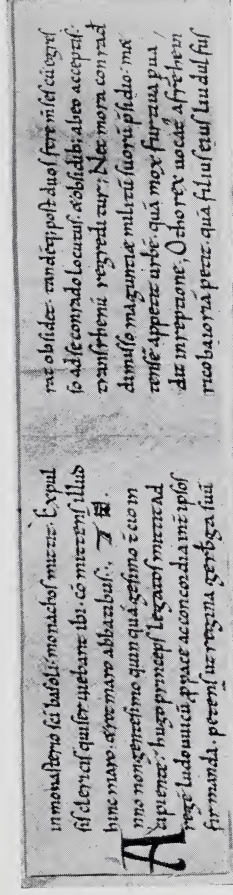 inmonasterio sci basoli. monachos mittit. Expul
sis clericis qui seruiebant ibi. cõmittens illud
hincmaro.
Anno nongentesimo quinquagesimo tcio in
cipiente. hugo princeps legatos mittit ad
regẽ ludouuicũ, p pace ac concordia int ipsos
firmanda. petens ut regina gerberga suũ
rat obsidet. tandẽq; post duos fere mẽses cũ egres
so ad se conrado locutus. &obsidib; ab eo acceptis.
transrhenũ regreditur; Nec mora conrad
dimisso maguntiæ militũ suorũ psidio. met
tensẽ appetit urbẽ. quã mox furtiua pua
dit inreptione; Otho rex uocat
rico baioriã petit. quã filius eius liudulfus